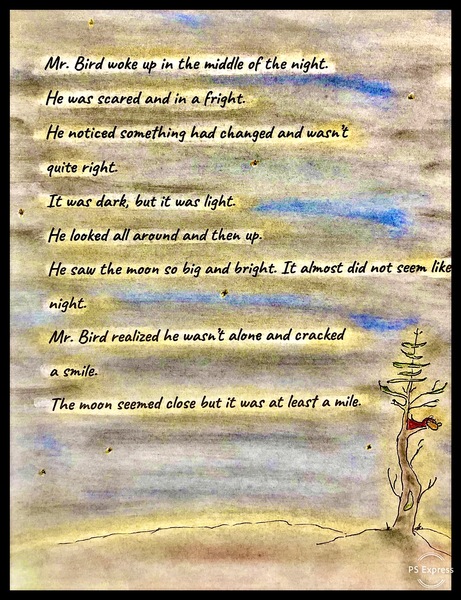 Mr. Bird woke up in the middle of the night.
He was scared and in a fright.
He noticed something had changed and wasn't
quite right.
It was dark, but it was light.
He looked all around and then up.
He saw the moon so big and bright. It almost did not seem like
night.
Mr. Bird realized he wasn't alone and cracked
a smile.
The moon seemed close but it was at least a mile.
PS Express